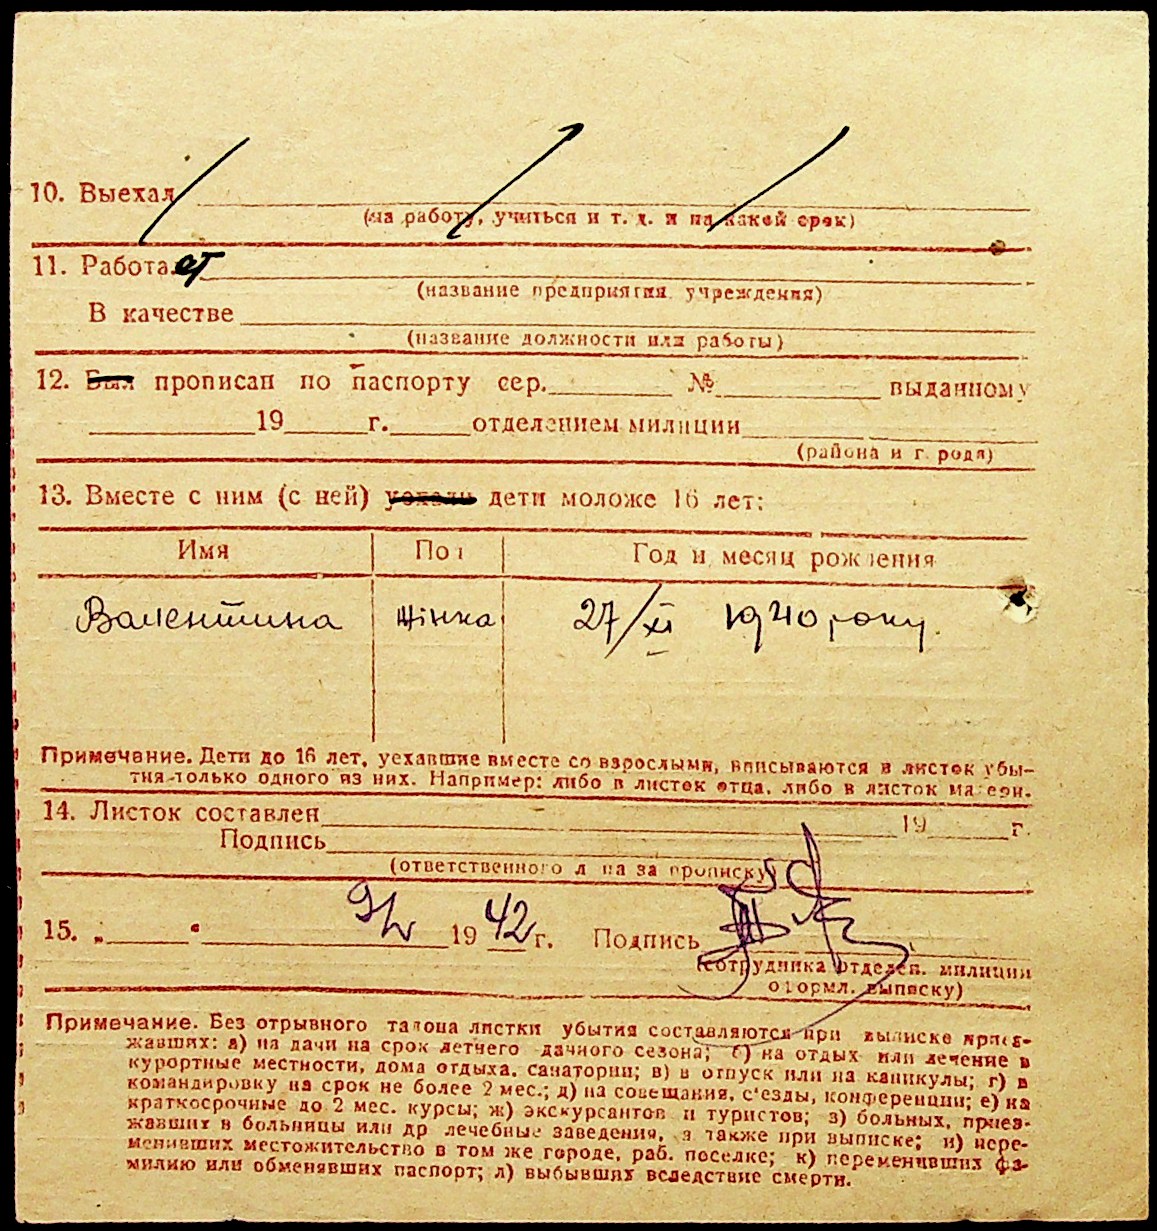 10. Выехал
(на работу, учиться и т. д. и на какой срок)
11. Работает
(название предприятия, учреждения)
В качестве
(название должности или работы)
12. Был прописан по паспорту сер. № выданному
19 г. отделением милиции
(района и города)
13. Вместе с ним (с ней) уехали дети моложе 16 лет:
Имя Пол Год и месяц рождения
Валентина жінка 27/XI 1940 року.
Примечание. Дети до 16 лет, уехавшие вместе со взрослыми, вписываются в листок убы-
тия только одного из них. Например: либо в листок отца, либо в листок матери.
14. Листок составлен 19 г.
Подпись
(ответственного лица за прописку)
15. „ “ 1942 г. Подпись
(сотрудника отделен. милиции
оформл. выписку)
Примечание. Без отрывного талона листки убытия составляются при выписке приез-
жавших: а) на дачи на срок летнего дачного сезона; б) на отдых или лечение в
курортные местности, дома отдыха, санатории; в) в отпуск или на каникулы; г) в
командировку на срок не более 2 мес.; д) на совещания, с'езды, конференции; е) на
краткосрочные до 2 мес. курсы; ж) экскурсантов и туристов; з) больных, приез-
жавших в больницы или др лечебные заведения, а также при выписке; и) пере-
менивших местожительство в том же городе, раб. поселке; к) переменивших фа-
милию или обменявших паспорт; л) выбывших вследствие смерти.